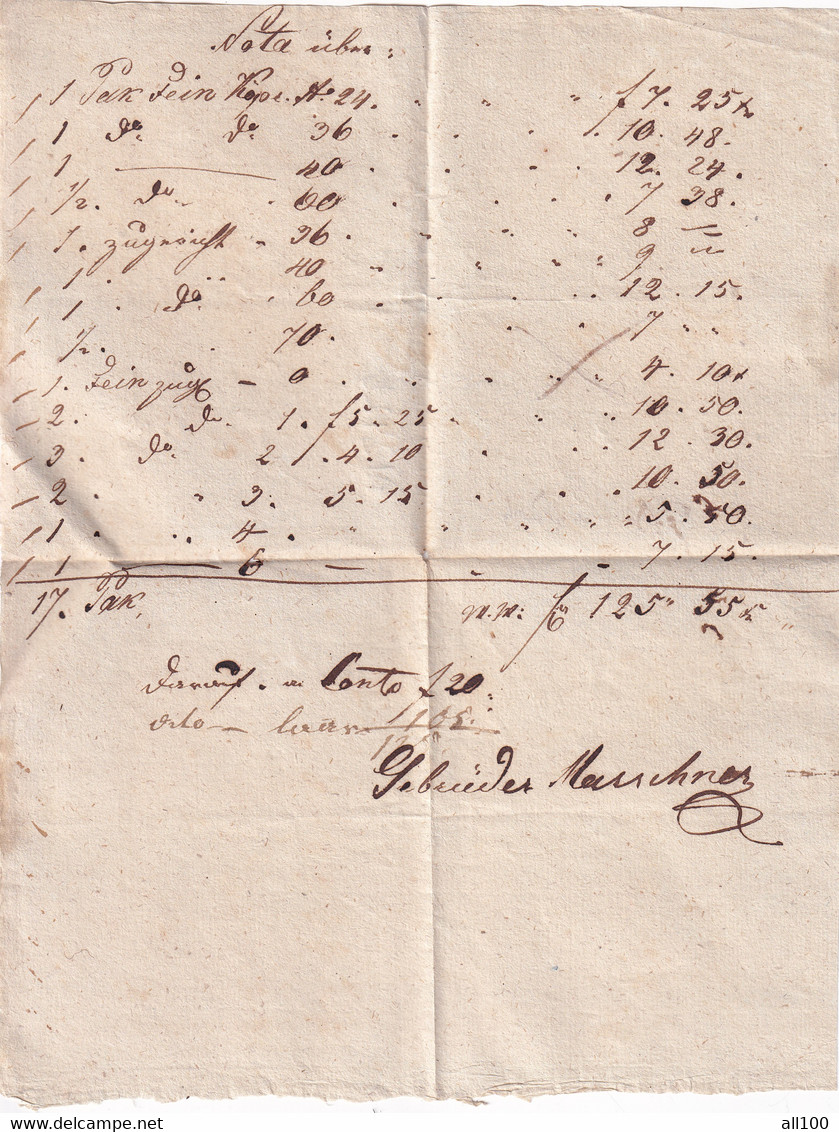 Nota über:
1 Pak Fein No. 24. " " f 7. 25 x
1 do. do. 36 . . . 10. 48.
1 — 40 . . . 12. 24.
1/2. do. . 60 . . . 7 38.
1. zugericht - 36 . . . 8 —
1. " 40 " . . 9 "
1. do. . 60 . . . 12. 15.
1/2. 70. . . 7 " "
1. Fein zug - 0 . . . 4. 10 x
2. do. 1. f 5. 25 " . . 10. 50.
3. do. 2 . 4. 10 " . . 12. 30.
2. " 3. 5. 15 . . . 10. 30.
1. .. 4. " " " 5. 50.
1 — 6 — - 7. 15.
17. Pak. W.W: f 125 " 55 x "
darauf. a Conto f 20.
dto — baar 105.
Gebrüder Marschner
HipPostcard.com
all100